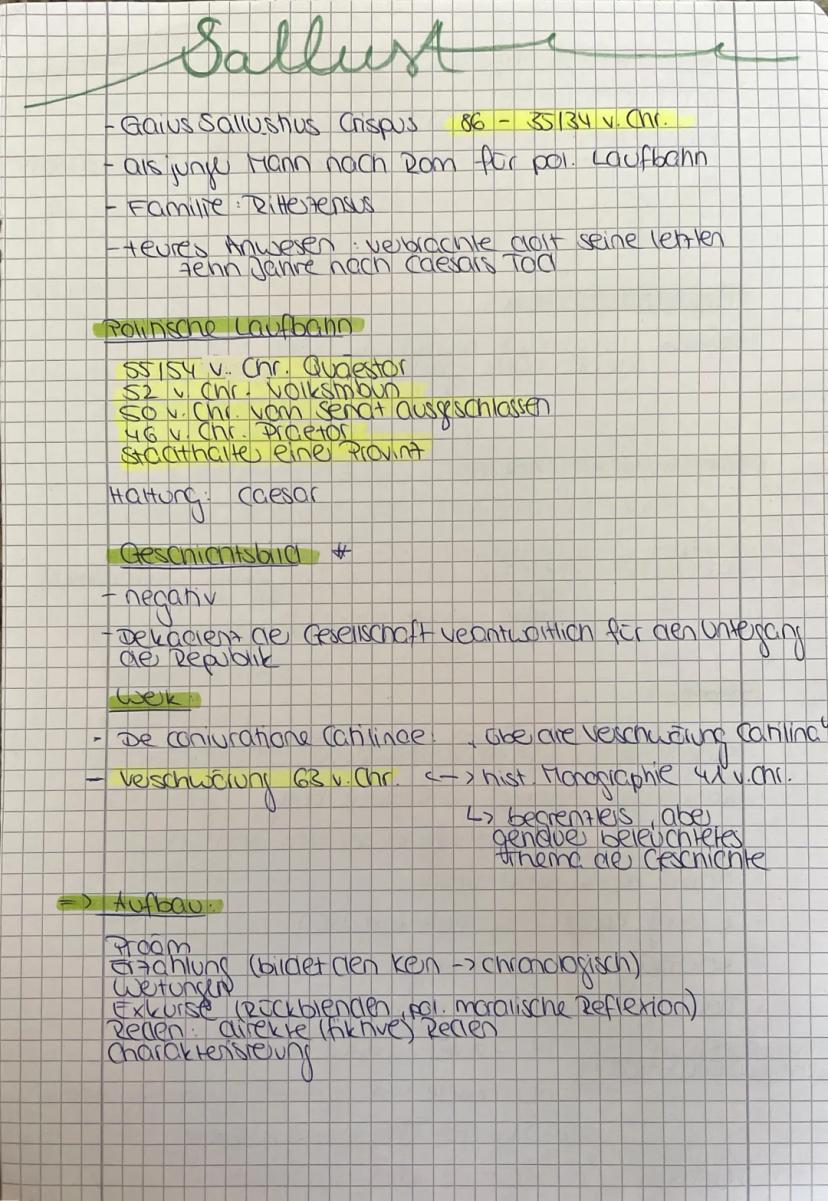 Sallust
- Gaius Sallustius Crispus 86 - 35/34 v. Chr.
- als junge Mann nach Rom für pol. Laufbahn
- Familie: Ritterzensus
- teures Anwesen: verbrachte dort seine letzten
zehn Jahre nach Caesars Tod
Politische Laufbahn
55/54 v. Chr. Quaestor
52 v. Chr. Volkstribun
50 v. Chr. vom Senat ausgeschlossen
46 v. Chr. Praetor
Statthalter eine Provinz
Haltung: Caesar
Geschichtsbild *
- negativ
- Dekadenz der Gesellschaft verantwortlich für den Untergang
der Republik
Werk:
- De coniuratione Catilinae: „über die Verschwörung Catilina“
- Verschwörung 63 v. Chr. <-> hist. Monographie 41 v. Chr.
↳ begrenztes, aber
genaue beleuchtetes
Thema der Geschichte
=> Aufbau:
Proöm
Erzählung (bildet den Kern -> chronologisch)
Wertungen
Exkurse (Rückblenden, pol. moralische Reflexion)
Reden: direkte (fiktive) Reden
Charakterisierung